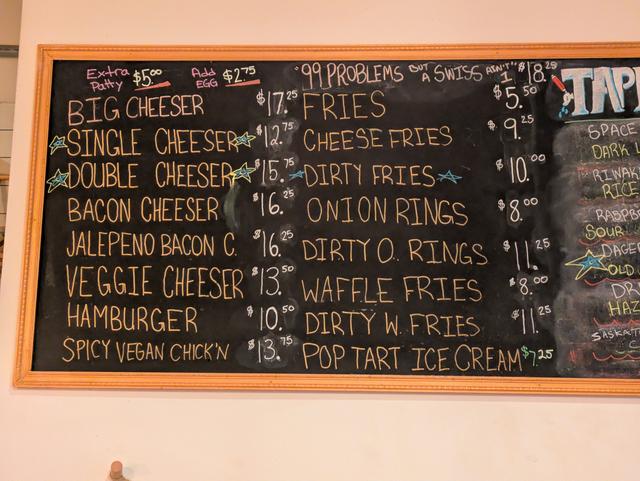 Extra Patty $5.00 Add EGG $2.75
BIG CHEESER $17.25
SINGLE CHEESER $12.75
DOUBLE CHEESER $15.75
BACON CHEESER $16.25
JALEPENO BACON C. $16.25
VEGGIE CHEESER $13.50
HAMBURGER $10.50
SPICY VEGAN CHICK'N $13.75
"99 PROBLEMS BUT A SWISS AIN'T 1" $18.25
FRIES $5.50
CHEESE FRIES $9.25
DIRTY FRIES $10.00
ONION RINGS $8.00
DIRTY O. RINGS $11.25
WAFFLE FRIES $8.00
DIRTY W. FRIES $11.25
POP TART ICE CREAM $7.25
SPACE
DARK
RICE
SOUR
OLD